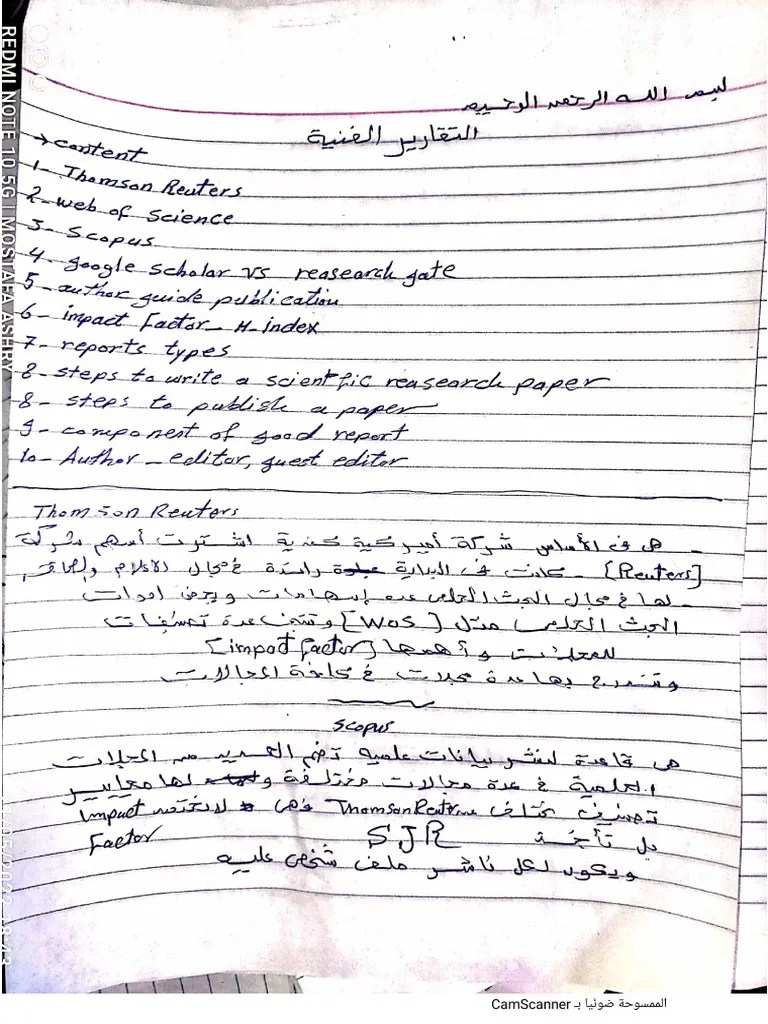 بسم الله الرحمن الرحيم
التقارير الفنية
→ content
1- Thomson Reuters
2- web of science
3- Scopus
4- google scholar vs reasearch gate
5- author guide publication
6- impact Factor - H-index
7- reports types
8- steps to write a scientific reasearch paper
8- steps to publish a paper
9- component of good report
10- Author - editor, guest editor
Thomson Reuters
- هى فى الأساس شركة أميركية كندية اشترت أسهم شركة
[Reuters] - كانت فى البداية رائدة فى مجال الاعلام
- لها فى مجال البحث العلمى عدة إسهامات وبعض ادوات
البحث العلمى مثل [WoS] وتتضمن عدة تصنيفات
للمجلات وأهمها [impact factor]
وتندرج بها عدة مجلات فى كافة المجالات
Scopus
هى قاعدة لنشر بيانات علميه تضم العديد من المجلات
العلمية فى عدة مجالات مختلفة ولها معايير
تصنيف تختلف Thomson Reuters فهى لا تعتمد impact
Factor
بل تأخذ SJR
ويكون لكل ناشر ملف شخصى عليه
REDMI NOTE 10 5G | MOSTAFA ASHRY
الممسوحة ضوئيا بـ CamScanner